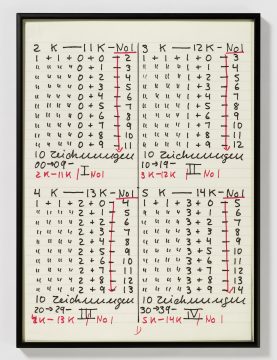 2 K — 11 K — No 1
1 + 1 + 0 + 0 — 2
" " " " 0 + 1 — 3
" " " " 0 + 2 — 4
" " " " 0 + 3 — 5
" " " " 0 + 4 — 6
" " " " 0 + 5 — 7
" " " " 0 + 6 — 8
" " " " 0 + 7 — 9
" " " " 0 + 8 — 10
" " " " 0 + 9 — 11
10 Zeichnungen
00→09—
2K—11K I No 1
3 K — 12 K — No 1
1 + 1 + 1 + 0 — 3
" " " " 1 + 1 — 4
" " " " 1 + 2 — 5
" " " " 1 + 3 — 6
" " " " 1 + 4 — 7
" " " " 1 + 5 — 8
" " " " 1 + 6 — 9
" " " " 1 + 7 — 10
" " " " 1 + 8 — 11
" " " " 1 + 9 — 12
10 Zeichnungen
10→19—
3K—12K No 1
4 K — 13 K — No 1
1 + 1 + 2 + 0 — 4
" " " " 2 + 1 — 5
" " " " 2 + 2 — 6
" " " " 2 + 3 — 7
" " " " 2 + 4 — 8
" " " " 2 + 5 — 9
" " " " 2 + 6 — 10
" " " " 2 + 7 — 11
" " " " 2 + 8 — 12
" " " " 2 + 9 — 13
10 Zeichnungen
20→29—
4K—13K III No 1
5 K — 14 K — No 1
1 + 1 + 3 + 0 — 5
" " " " 3 + 1 — 6
" " " " 3 + 2 — 7
" " " " 3 + 3 — 8
" " " " 3 + 4 — 9
" " " " 3 + 5 — 10
" " " " 3 + 6 — 11
" " " " 3 + 7 — 12
" " " " 3 + 8 — 13
" " " " 3 + 9 — 14
10 Zeichnungen
30→39—
5K—14K IV No 1